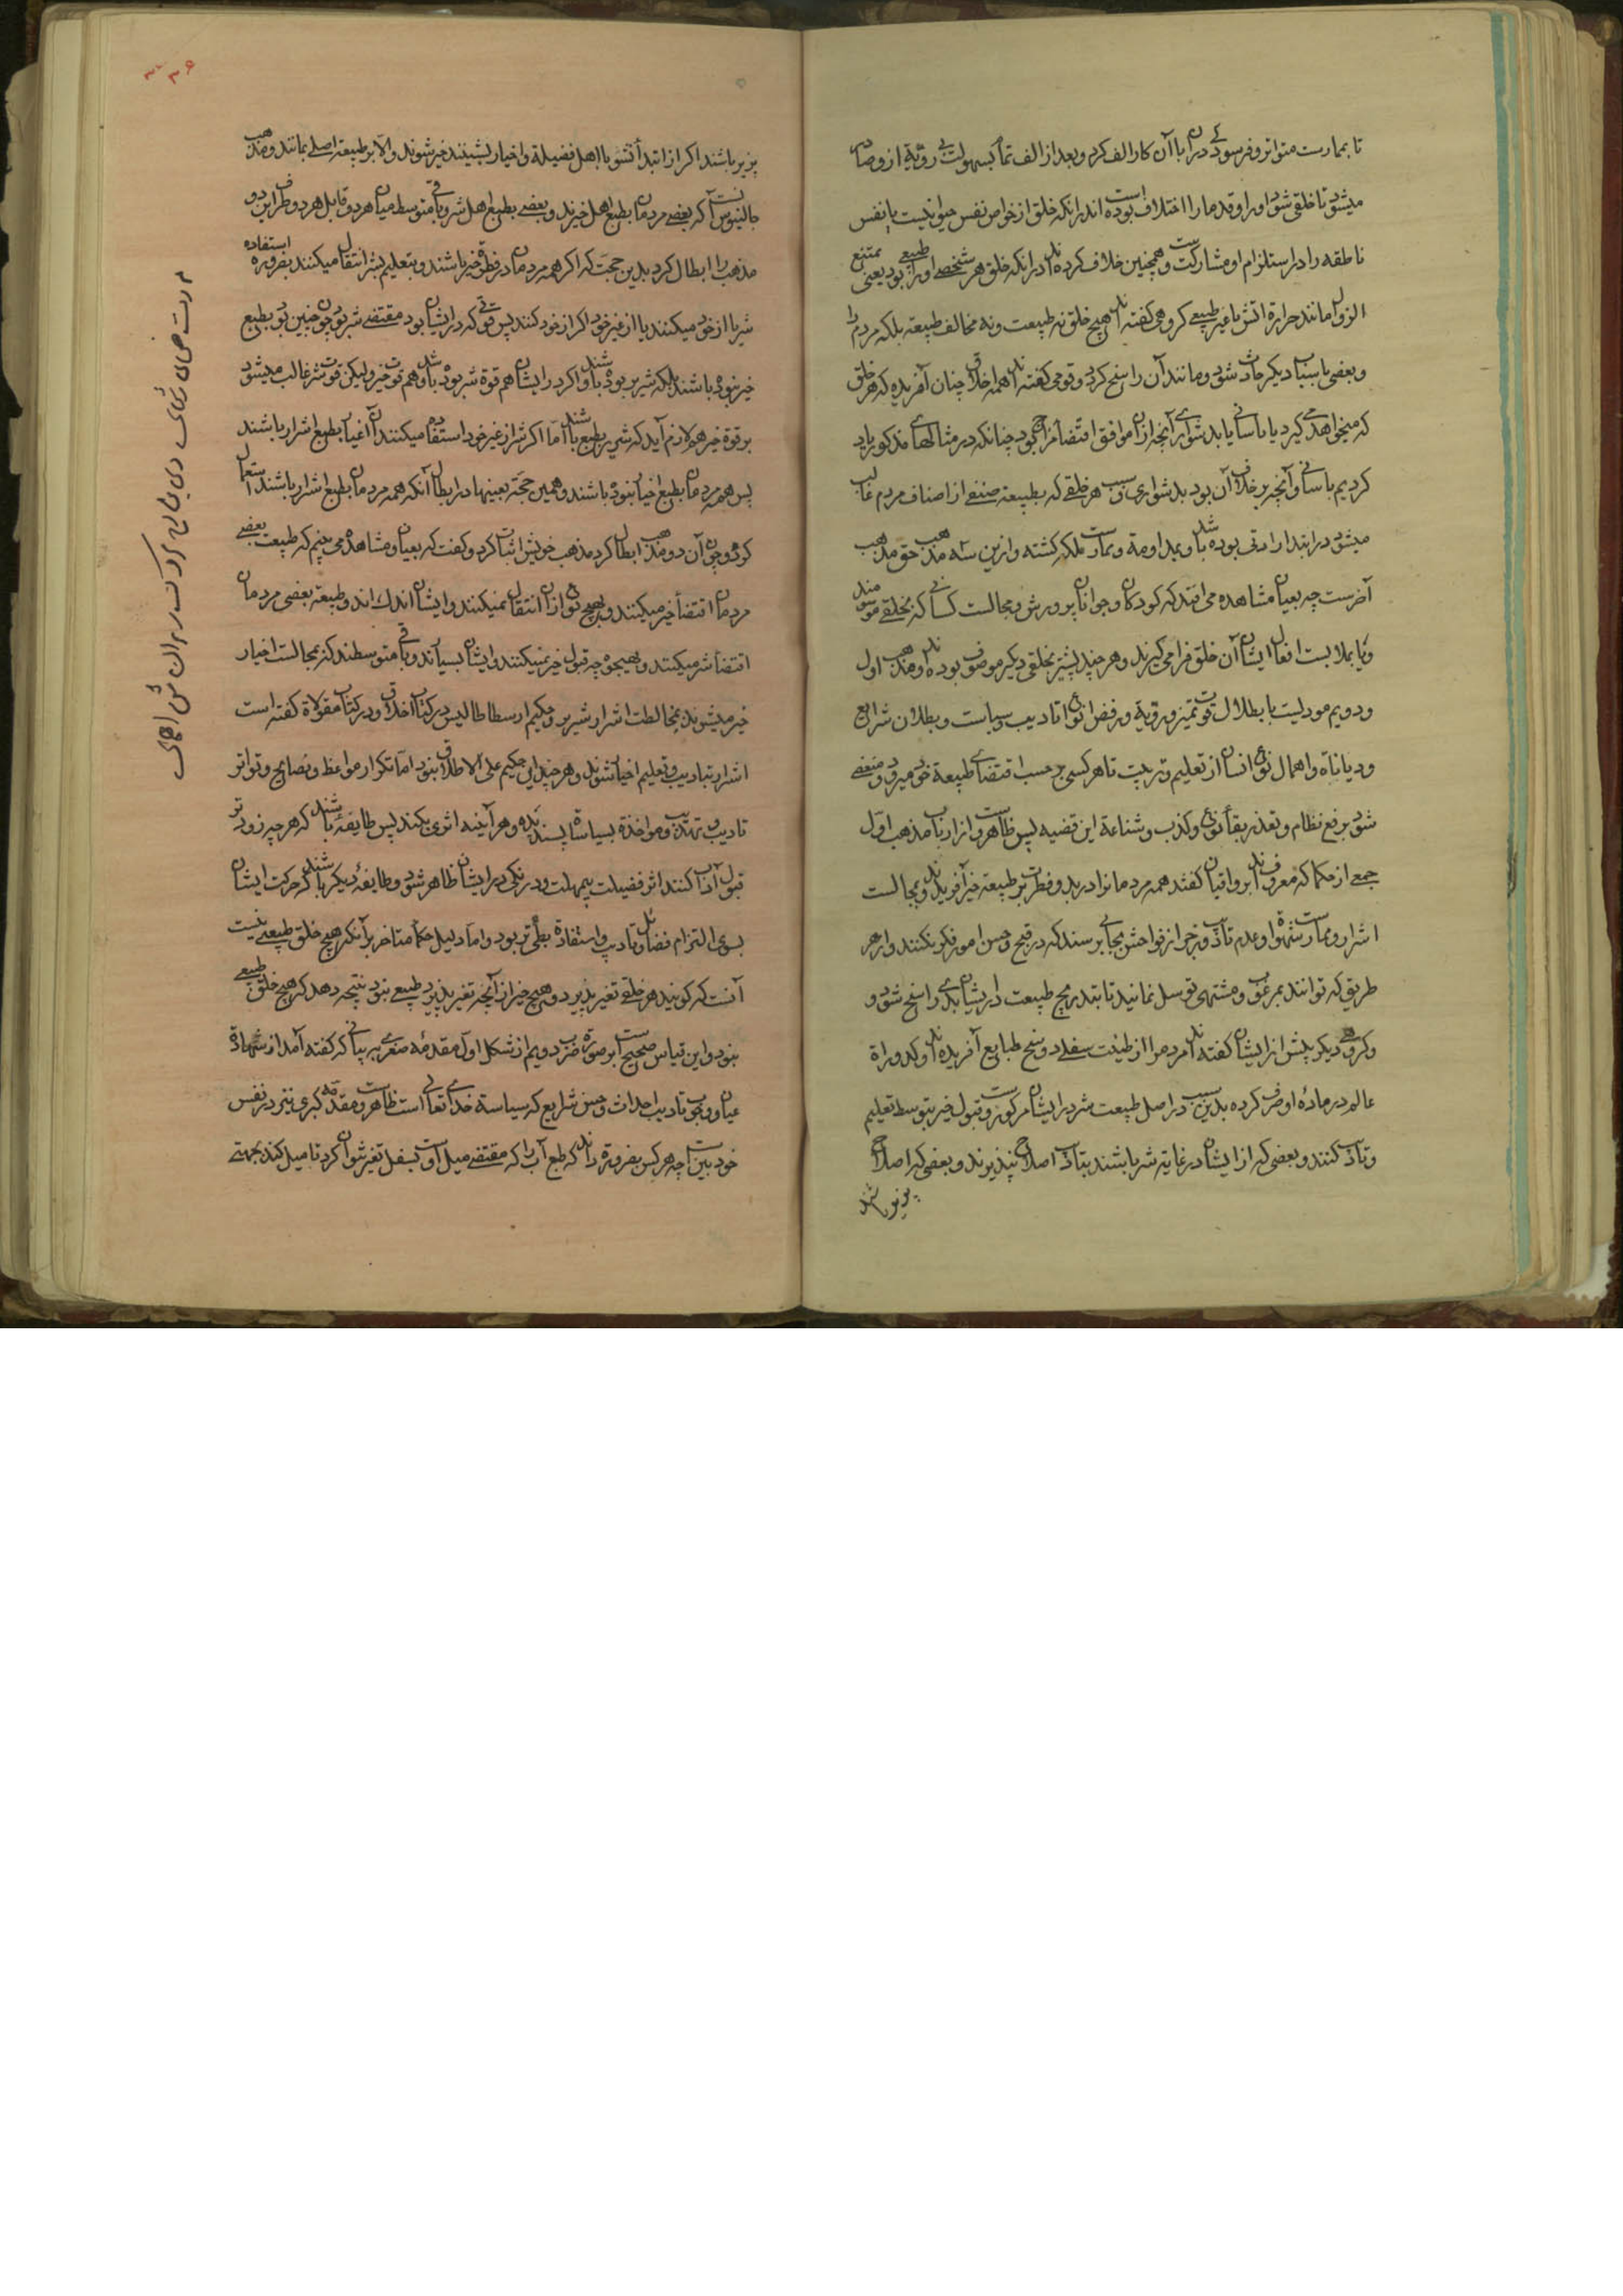 تا بممارست متواتر و فرسودگی در آن با آن کار الف کرد و بعد از الف تمام بسهولت بی رویة از و صادر
میشود تا خلقی شود او را و قدما را اختلاف بوده است اندر انکه خلق از خواص نفس حیوانیست یا نفس
ناطقه را در استلزام او مشارکت است و همچنین خلاف کرده اند در انکه خلق هر شخصی او را طبیعی بود یعنی ممتنع
الزوال مانند حرارة اتش یا غیر طبیعی کروهی کفته اند هیچ خلق نه طبیعت و نه مخالف طبیعة بلکه مردم را
و بعضی باسباب دیکر حادث شود و مانند آن راسخ کردد و قومی کفته اند همه اخلاق چنان آفریده که هر خلق
که میخواهد میکیرد یا باسانی یا بدشواری آنچه از آن موافق اقتضاء مزاج بود چنانکه در مثالهای مذکور یاد
کردیم باسانی و آنچه بر خلاف آن بود بدشواری و سبب هر خلقی که بطبیعة صنفی از اصناف مردم غالب
میشود در ابتدا ارادتی بوده باشد و بمداومة و ممارست ملکه کشته و ازین سه مذهب حق مذهب
آخرست چه بعیان مشاهده می افتد که کودکان و جوانان بپرورش و مجالست کسانی که بخلقی موسومند
و یا بملابست افعال ایشان آن خلق فرا می کیرند و هر چند پیشتر بخلقی دیکر موصوف بوده اند و مذهب اول
و دویم مودیست بابطال قوت تمیز و رویة و رفض انواع تادیب و سیاست و بطلان شرایع
و دیاناة و اهمال نوع انسان از تعلیم و تربیت تا هر کسی بر حسب اقتضای طبیعة خود میرود و منفضی
شود برفع نظام و تعذر بقاء نوع و کذب و شناعة این قضیه بس ظاهرست و از ارباب مذهب اول
جمعی از حکما که معروف اند برواقیان کفتند همه مردمانرا در بدو فطرت بر طبیعة خیر آفریده اند و بمجالست
اشرار و ممارست شهوة او عدم تادیب و زجر از فواحش بجایی برسند که در قبح و حسن امور فکر نکنند و از هر
طریق که توانند بمرغوب و مشتهی توسل نمایند تا بتدریج طبیعت در ایشان بدی راسخ شود و
و کروهی دیکر پیش از ایشان کفته اند مردم را از طینت سفلی و وسخ طبایع آفریده اند و کدوراة
عالم در ماده او صرف کرده بدین سبب در اصل طبیعت شر در ایشان مرکوزست و قبول خیر بتوسط تعلیم
و تادیب کنند و بعضی که از ایشان در غایة شر باشند بتادیب اصلاح نپذیرند و بعضی که اصلاح
پذیر باشند
پزیر باشند اکر از ابتداء نشو با اهل فضیلة و اخیار نشینند خیر شوند و الا بر طبیعة اصلی بمانند و مذهب
جالینوس آنست که بعضی مردمان بطبع اهل خیرند و بعضی بطبع اهل شر و باقی متوسط میان هر دو و قابل هر دو طرف این دو
مذهب را ابطال کرد بدین حجت که اکر همه مردمان در فطرت خیر باشند و بتعلیم بشر انتقال میکنند بضروره استفاده
شر یا از خود میکنند یا از غیر خود اکر از خود کنند پس قوتی که در ایشان بود مقتضی شر بود و چون چنین بود بطبع
خیر نبوده باشند بلکه شریر بوده باشند و اکر در ایشان هم قوة شر بوده باشد و هم قوت خیر ولیکن قوت شر غالب میشود
بر قوة خیر هم لازم آید که شریر بطبع باشند اما اکر شر از غیر خود استفاده میکنند آن اغیار بطبع اشرار باشند
پس همه مردمان بطبع اخیار نبوده باشند و همین حجة بعینها در ابطال آنکه همه مردمان بطبع اشرار باشند استعمال
کرد و چون آن دو مذهب ابطال کرد مذهب خویش اثبات کرد و کفت که بعیان و مشاهده می بینم که طبیعت بعضی
مردمان اقتضاء خیر میکنند و بهیچ نوع از آن انتقال نمیکنند و ایشان اندک اند و طبیعة بعضی مردمان
اقتضاء شر میکنند و بهیچ وجه قبول خیر نمیکنند و ایشان بسیارند و باقی متوسطند که بمجالست اخیار
خیر میشوند بمخالطت اشرار شریر و حکیم ارسطاطالیس در کتاب اخلاق و در کتاب مقولاة کفته است
اشرار بتادیب و تعلیم اخیار شوند و هر چند این حکیم علی الاطلاق نبود اما تکرار مواعظ و نصایح و تواتر
تادیب و تهذیب و مواخذة بسیاساة پسندیده و هر آینه اثری بکند پس طایفه باشند که هر چه زودتر
قبول آداب کنند اثر فضیلت بیمهلت و درنکی در ایشان ظاهر شود و طایفه دیکر باشند که حرکت ایشان
بسوی التزام فضایل و تادیب و استفادة بطی تر بود و اما دلیل حکماء متاخر بر آنکه هیچ خلق طبیعی نیست
آنست که کویند هر خلقی تغیر پذیرد و هیچ چیز از آنچه تغیر پذیرد طبیعی نبود نتیجه دهد که هیچ خلق طبیعی
نبود و این قیاس صحیحست بر صورة ضرب دویم از شکل اول مقدمه صغری بر بیانی که کفته آمد از شهادة
عیان و وجوب تادیب احداث و حسن شرایع که سیاسة خدای تعالی است ظاهرست و مقدمه کبری نیز در نفس
خود بین است چه هر کس بضرورة داند که طبع آب را که مقتضی میل اوست بسفل تغیر نتوان کرد تا میل کند بجهتی